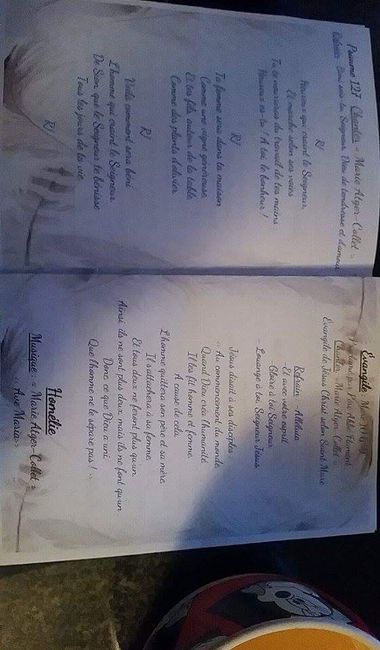 Psaume 127 Chantés « Marie Alger-Collet »
Refrain : Béni sois-tu Seigneur, Dieu de tendresse et d'amour
R/
Heureux qui craint le Seigneur,
Et marche selon ses voies
Tu te nourriras du travail de tes mains
Heureux es-tu ! A toi, le bonheur !
R/
Ta femme sera dans ta maison
Comme une vigne généreuse
Et tes fils autour de la table
Comme des plants d'olivier.
R/
Voilà comment sera béni
L'homme qui craint le Seigneur.
De Sion, que le Seigneur te bénisse
Tous les jours de ta vie
R/
Evangile
Evangile de Jésus Christ selon Saint Marc
Refrain : Alléluia
- Et avec votre esprit
- Gloire à toi Seigneur
- Louange à toi Seigneur Jésus
Jésus disait à ses disciples
« Au commencement du monde
Quand Dieu créa l'humanité
Il les fit homme et femme.
A cause de cela,
L'homme quittera son père et sa mère,
Il s'attachera à sa femme,
Et tous deux ne feront plus qu'un.
Ainsi, ils ne sont plus deux, mais ils ne font qu'un
Donc, ce que Dieu a uni,
Que l'homme ne le sépare pas ! »
Homélie
Musique : « Marie Alger-Collet »
« Ave Maria »